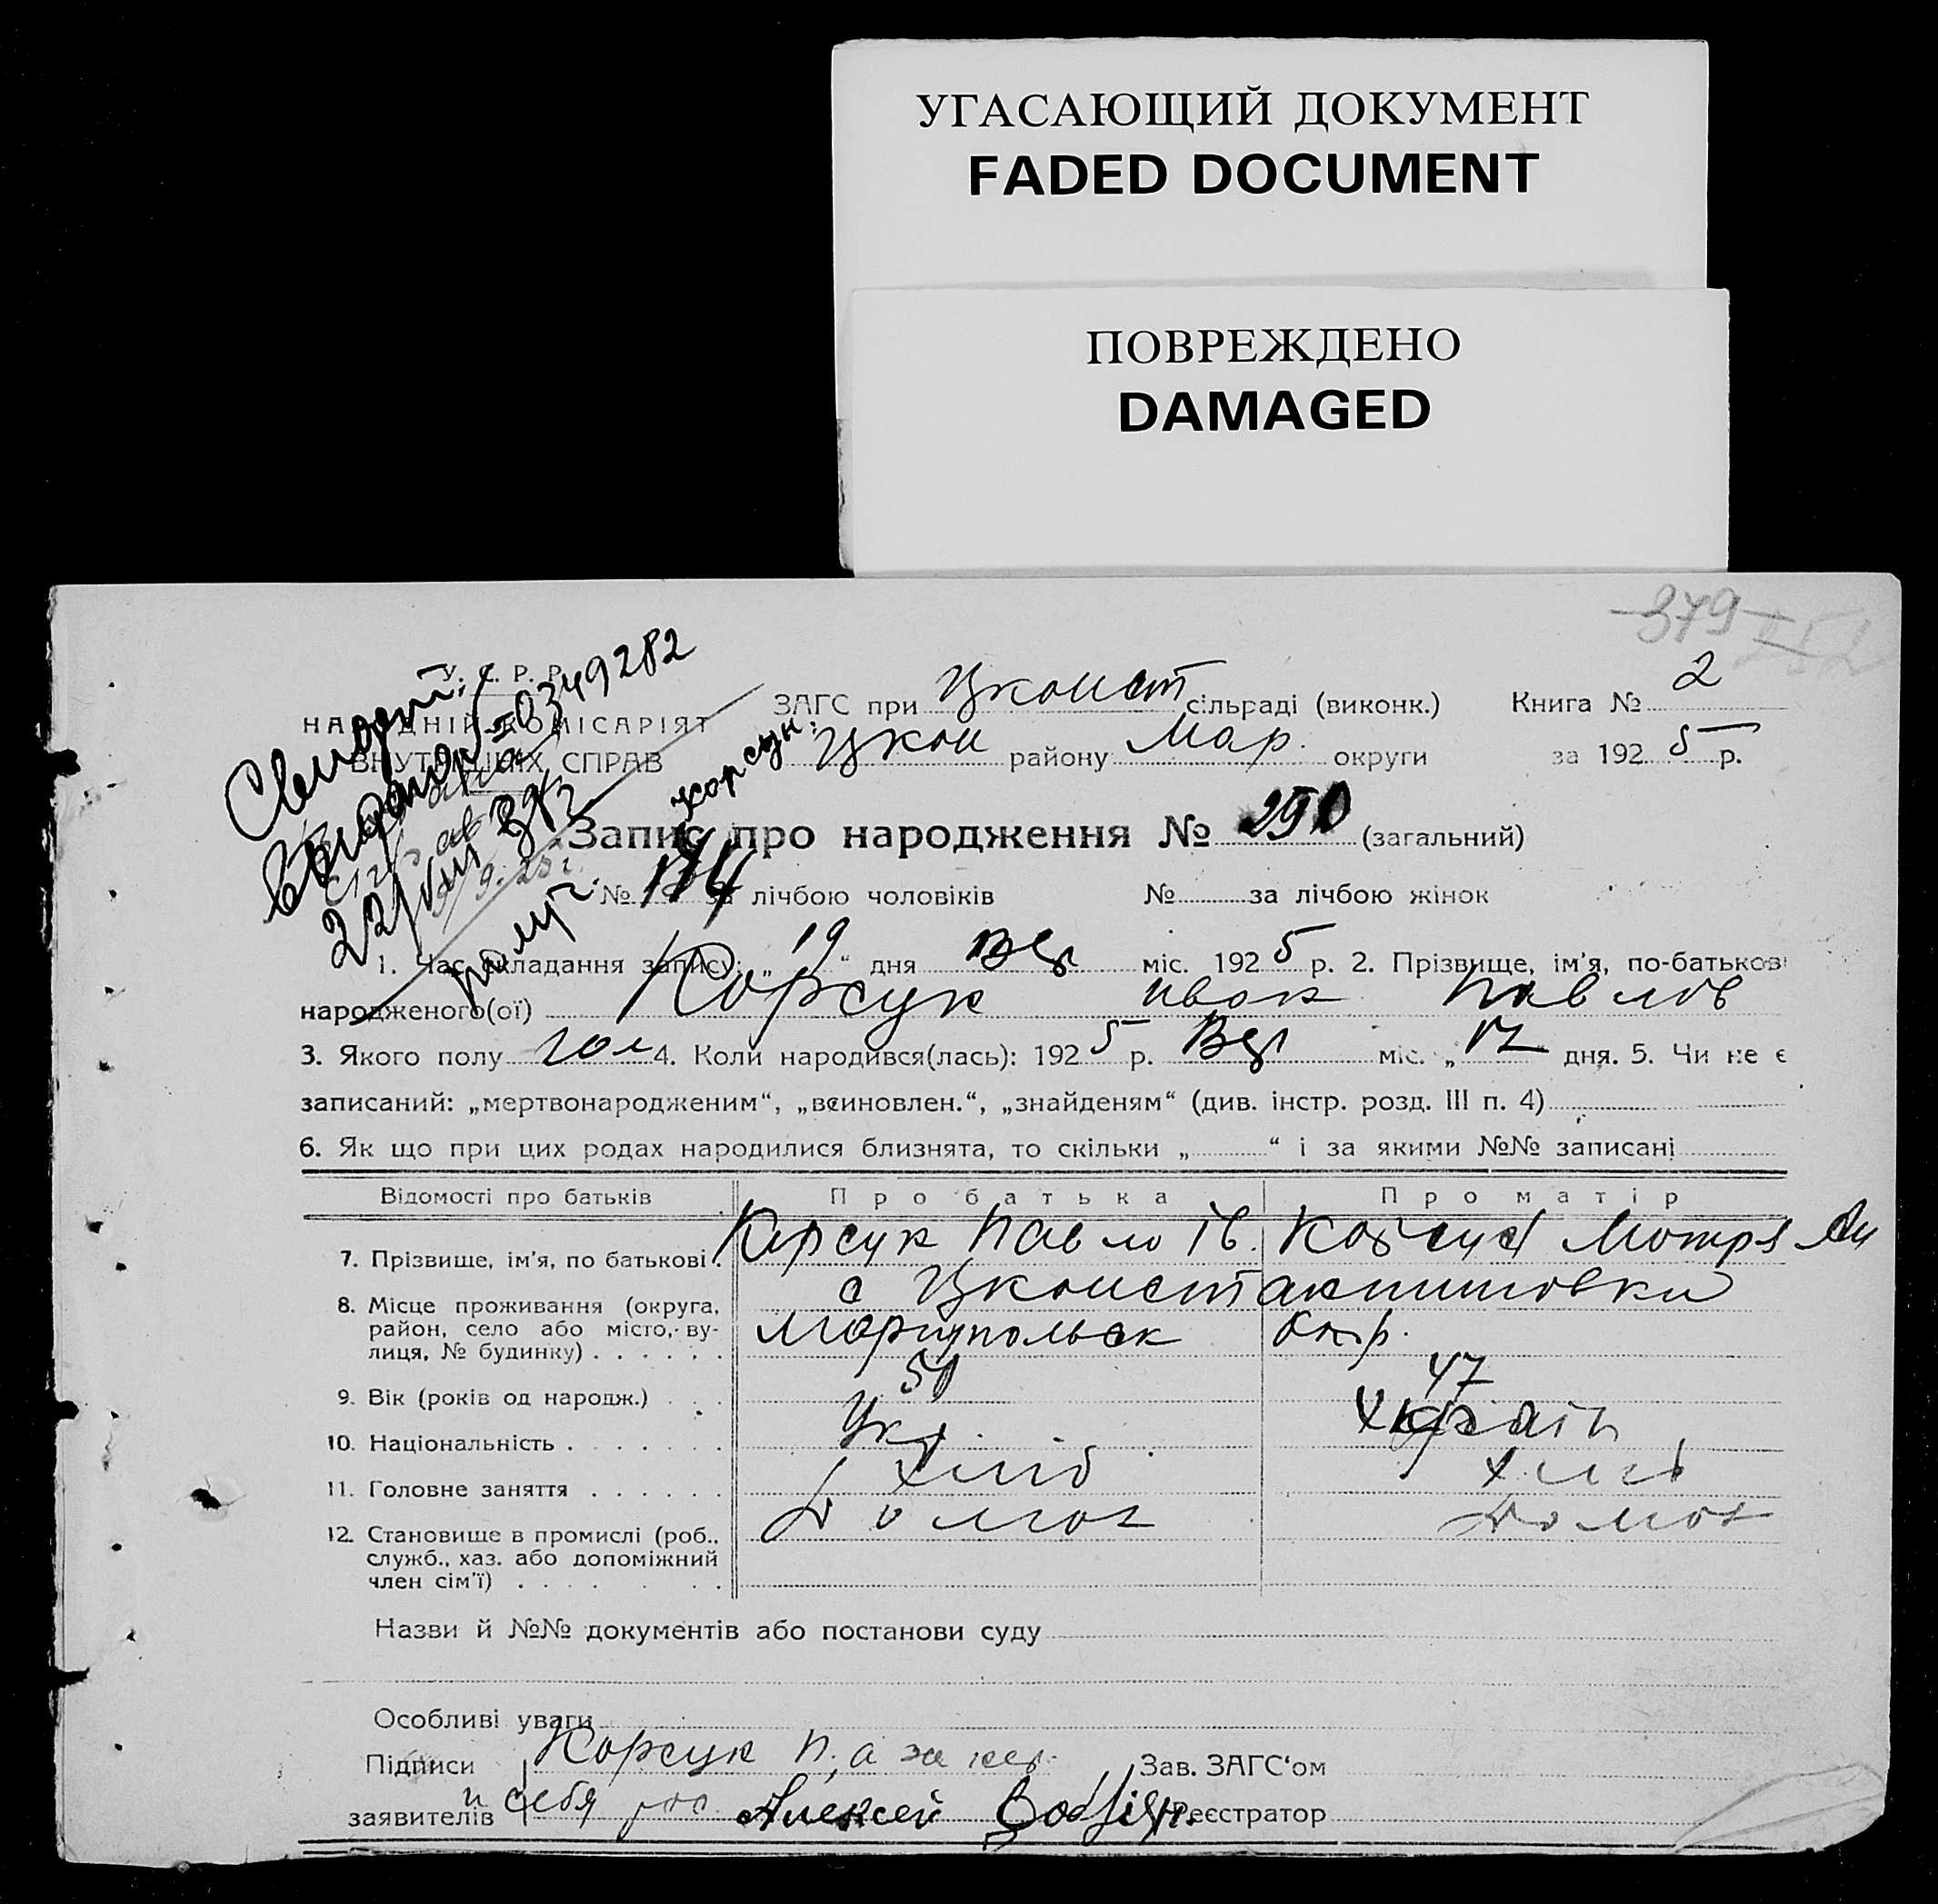 УГАСАЮЩИЙ ДОКУМЕНТ
FADED DOCUMENT
ПОВРЕЖДЕНО
DAMAGED
379
У. С. Р. Р.
НАРОДНІЙ КОМІСАРІЯТ
ВНУТРІШНІХ СПРАВ
0349282
ЗАГС при Цконст сільраді (виконк.) Книга № 2
Цкон району Мар. округи за 1925 р.
Запис про народження № 290 (загальний)
№ 174 за лічбою чоловіків № за лічбою жінок
1. Час складання запису: „ 19 “ дня Вер міс. 1925 р. 2. Прізвище, ім'я, по-батькові
народженого(ої) Корсун Иван Павлов
3. Якого полу чол 4. Коли народився(лась): 1925 р. Вер міс. „ 17 “ дня. 5. Чи не є
записаний: „мертвонародженим“, „всиновлен.“, „знайденям“ (див. інстр. розд. III п. 4)
6. Як що при цих родах народилися близнята, то скільки „ “ і за якими №№ записані
Відомості про батьків Про батька Про матір
7. Прізвище, ім'я, по батькові Корсун Павло Ів. Корсун Мотря
8. Місце проживання (округа, район, село або місто, вулиця, № будинку) с Цконстантиновки
Мариупольск окр.
9. Вік (років од народж.) 50 47
10. Національність Укр. Україн
11. Головне заняття Хліб Хліб
12. Становище в промислі (роб., служб., хаз. або допоміжний член сім'ї) Домог Домог
Назви й №№ документів або постанови суду
Особливі уваги
Підписи Корсун П, а за Зав. ЗАГС'ом
заявителів и себя рос Алексей Реєстратор